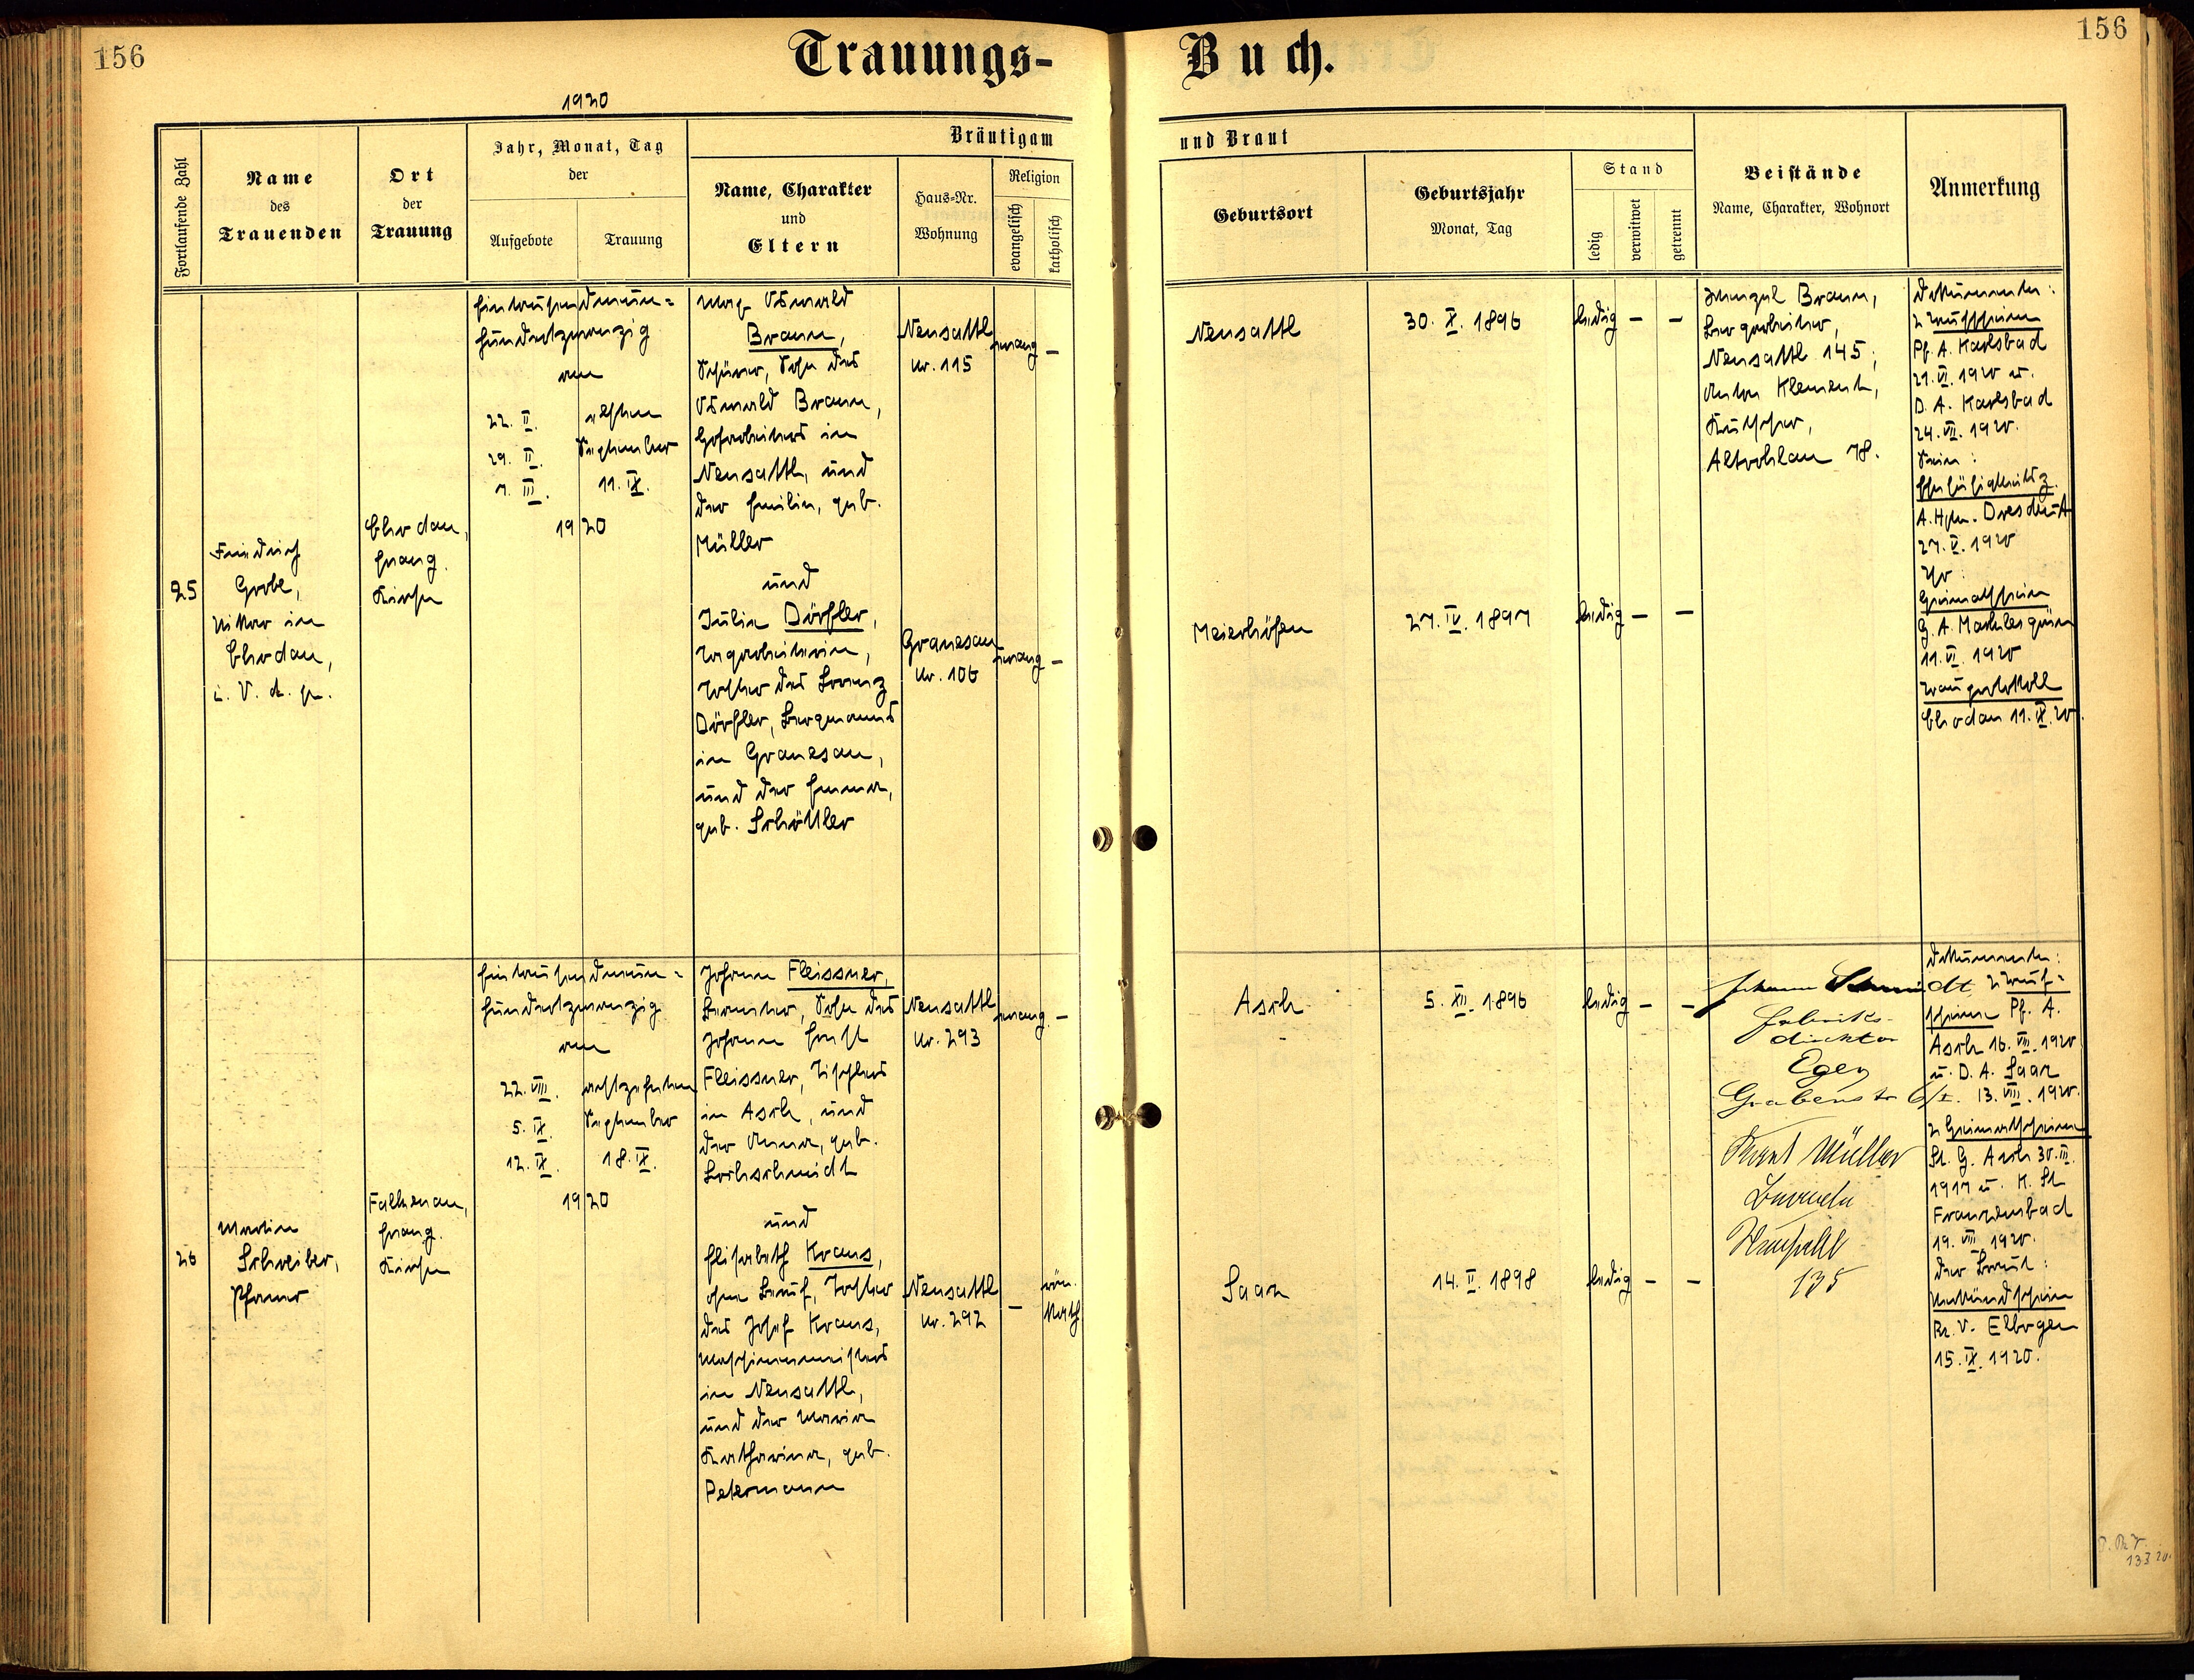 156
Trauungs-
Buch.
156
1920
Fortlaufende Zahl
Name
des
Trauenden
Ort
der
Trauung
Jahr, Monat, Tag
der
Aufgebote
Trauung
Bräutigam
Name, Charakter
und
Eltern
Haus-Nr.
Wohnung
Religion
evangelisch
katholisch
und Braut
Geburtsort
Geburtsjahr
Monat, Tag
Stand
ledig
verwitwet
getrennt
Beistände
Name, Charakter, Wohnort
Anmerkung
25
Friedrich
Grobe,
Vikar in
Chodau,
i. V. d. Pf.
Chodau,
Evang.
Kirche
Eintausendneun=
hundertzwanzig
am
22. II.
29. II.
7. III.
elften
September
11. IX.
1920
Max Oswald
Braun,
Schürer, Sohn des
Oswald Braun,
in
Neusattl, und
der Emilie, geb.
Müller
und
Julie Dörfler,
Tagarbeiterin,
Tochter des Lorenz
Dörfler, Bergmanns
in Granesau,
und der Emma,
geb. Schöttler
Neusattl
Nr. 115
evang.
–
Granesau
Nr. 106
evang.
–
Neusattl
30. X. 1896
ledig
–
–
Meierhöfen
27. IV. 1897
ledig
–
–
Wenzel Braun,
Bergarbeiter,
Neusattl 145;
Anton Klement,
Kutscher,
Altrohlau 78.
Dokumente:
2 Taufscheine
Pf. A. Karlsbad
21. VI. 1920 u.
D. A. Karlsbad
24. VII. 1920.
Sein:
Ehefähigkeitsz.
A. Hptm. Dresden A
27. V. 1920
Ihr:
Heimatschein
G. A. Maierlesgrün
11. VI. 1920
Trauprotokoll
Chodau 11. IX. 20.
26
Martin
Schreiber,
Pfarrer
Falkenau,
Evang.
Kirche
Eintausendneun=
hundertzwanzig
am
22. VIII.
5. IX.
12. IX.
achtzehnten
September
18. IX.
1920
Johann Fleissner,
Beamter, Sohn des
Johann Ernst
Fleissner, Tischlers
in Asch, und
der Anna, geb.
Lochschmidt
und
Elisabeth Kraus,
ohne Beruf, Tochter
des Josef Kraus,
Maschinenmeisters
in Neusattl,
und der Maria
Katharina, geb.
Petermann
Neusattl
Nr. 293
evang.
–
Neusattl
Nr. 292
–
röm.
kath.
Asch
5. XII. 1896
ledig
–
–
Saaz
14. II. 1898
ledig
–
–
Johann Schmidt
Fabriks-
direktor
Eger
Grabenstr 6/I.
Ernst Müller
Beamter
Neusattl
135
Dokumente:
2 Tauf=
scheine Pf. A.
Asch 16. VIII. 1920
u. D. A. Saaz
13. VIII. 1920.
2 Heimatscheine
St. G. Asch 30. III.
1917 u. K. St
Franzensbad
19. VIII. 1920.
der Braut:
Verkündschein
Bz. V. Elbogen
15. IX. 1920.